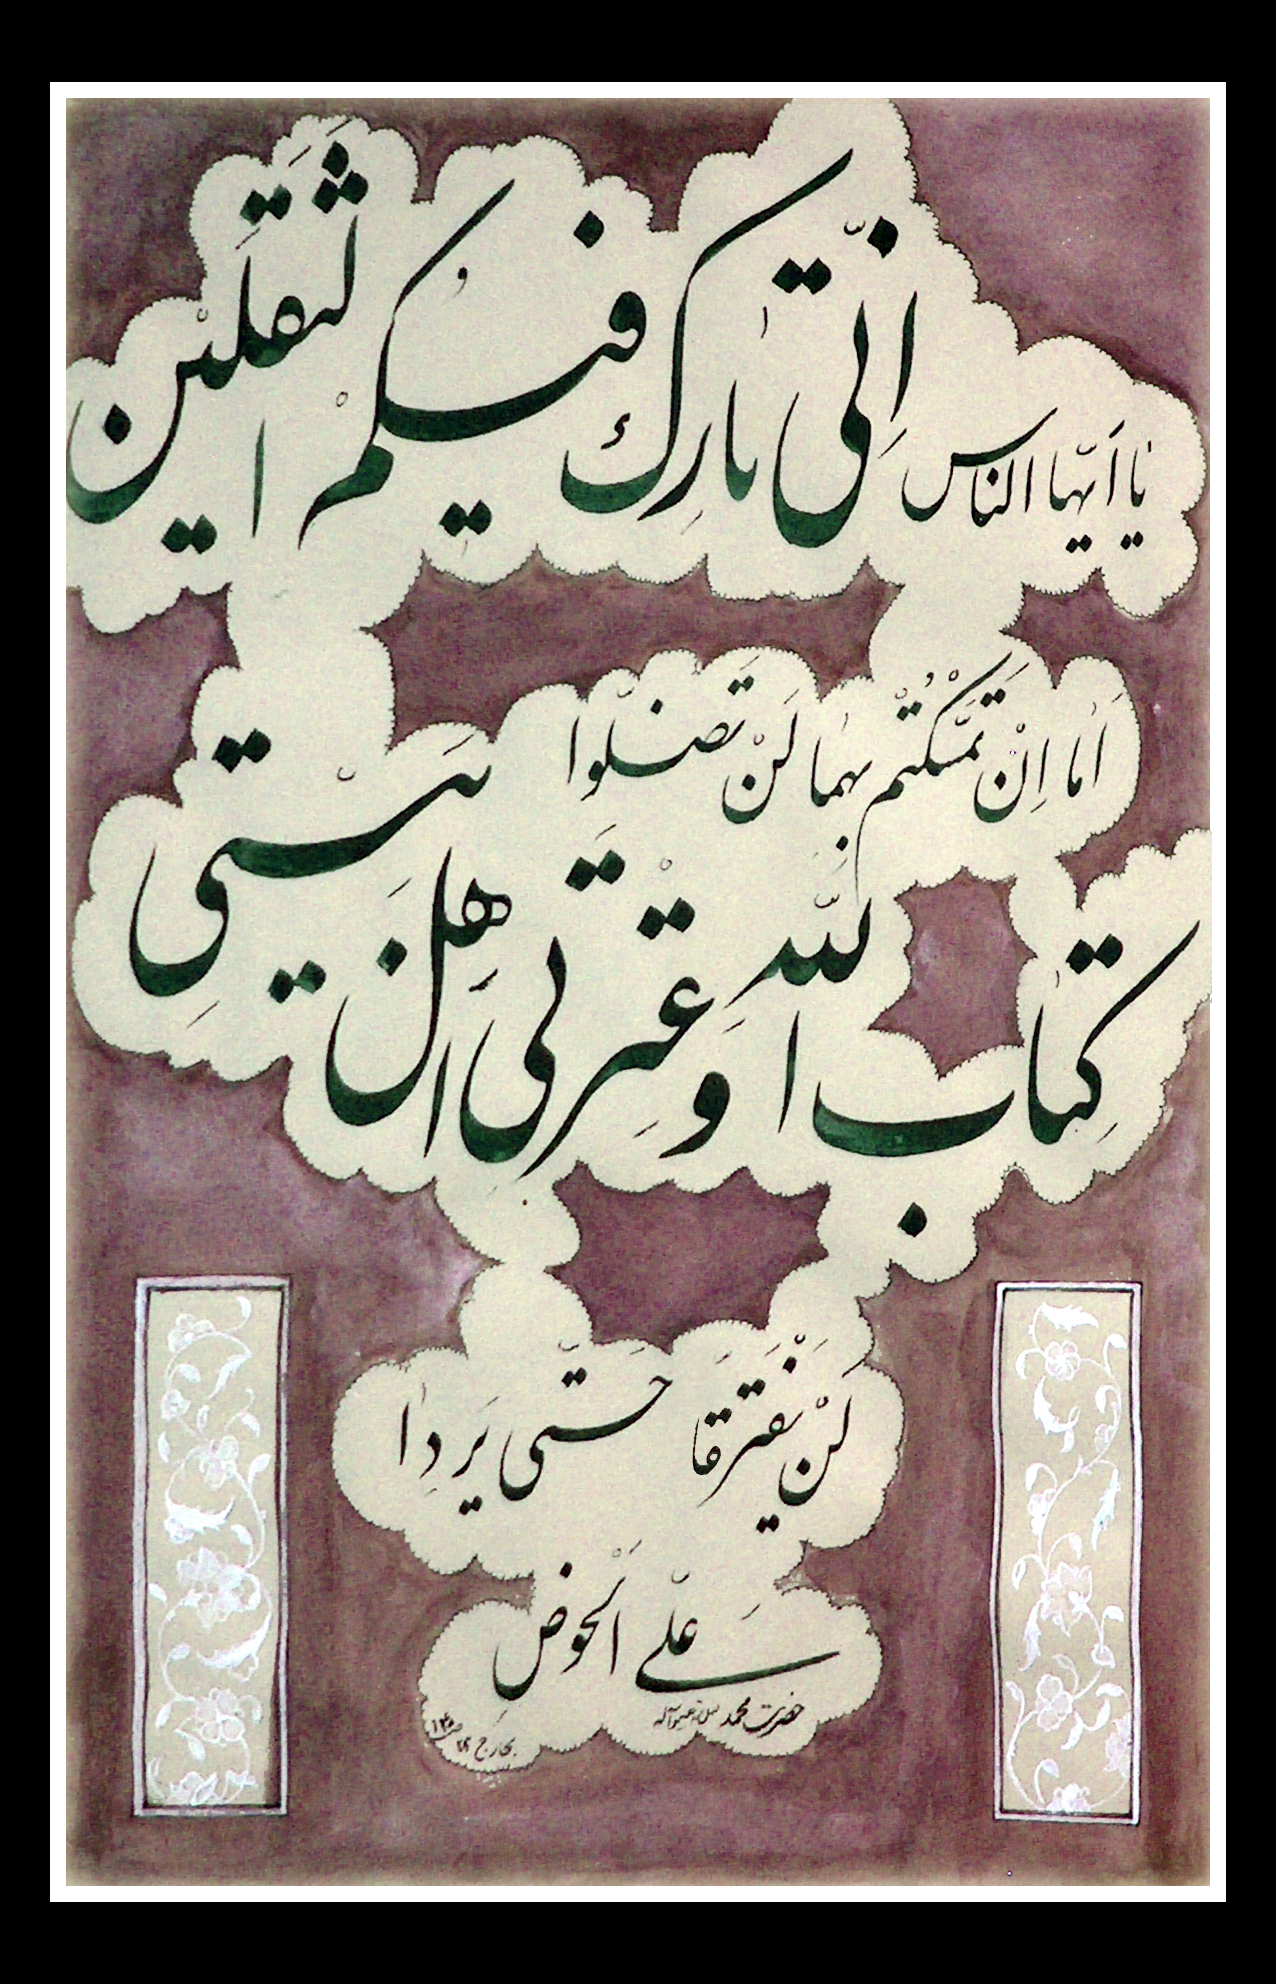 یا اَیُّها الناس اِنّی تارِکٌ فیکُمُ الثَقَلَیْن
اَما اِنْ تَمَسَّکْتُمْ بِهِما لَنْ تَضِلّوا
کِتابَ اللهِ وَ عِتْرَتی اَهْلَ بَیْتی
لَنْ یَفْتَرِقا حَتّی یَرِدا
عَلَیَّ الْحَوْض
حضرت محمد صلی الله علیه و آله
بحار ج